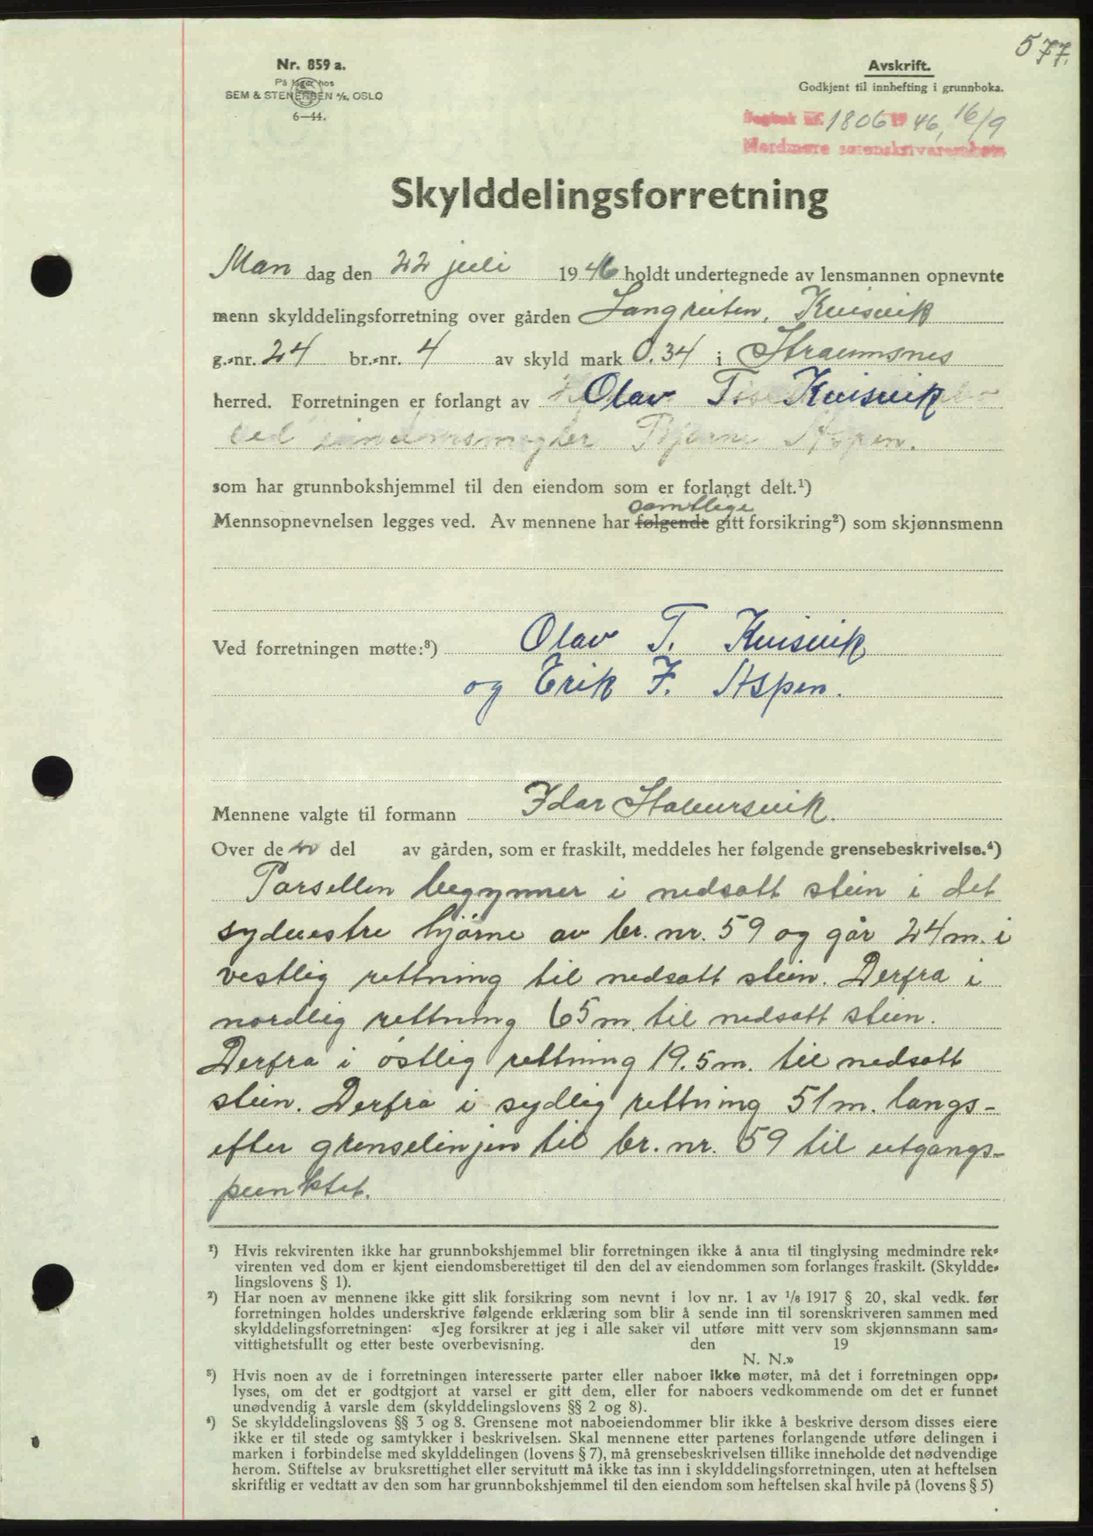 577.
Nr. 859 a.
På lager hos
SEM & STENERSEN A/S, OSLO
6—44.
Avskrift.
Godkjent til innhefting i grunnboka.
Dagbok nr. 1806 19 46, 16/9
Nordmøre sorenskriverembete
Skylddelingsforretning
Man dag den 22 juli 1946 holdt undertegnede av lensmannen opnevnte
menn skylddelingsforretning over gården Langreiten, Kvisvik
g.-nr. 24 br.-nr. 4 av skyld mark 0.34 i Straumsnes
herred. Forretningen er forlangt av Olav T. Kvisvik
ved eiendomsmegler Bjarne Aspen.
som har grunnbokshjemmel til den eiendom som er forlangt delt.¹)
samtlige
Mennsopnevnelsen legges ved. Av mennene har følgende gitt forsikring²) som skjønnsmenn
Ved forretningen møtte:³) Olav T. Kvisvik
og Erik F. Aspen.
Mennene valgte til formann Idar Stavursvik.
Over de n del av gården, som er fraskilt, meddeles her følgende grensebeskrivelse.⁴)
Parsellen begynner i nedsatt stein i det
sydvestre hjørne av br. nr. 59 og går 24 m. i
vestlig rettning til nedsatt stein. Derfra i
nordlig rettning 65 m. til nedsatt stein.
Derfra i østlig rettning 19.5 m. til nedsatt
stein. Derfra i sydlig rettning 51 m. langs-
efter grenselinjen til br. nr. 59 til utgangs-
punktet.
¹) Hvis rekvirenten ikke har grunnbokshjemmel blir forretningen ikke å anta til tinglysing medmindre rek-
virenten ved dom er kjent eiendomsberettiget til den del av eiendommen som forlanges fraskilt. (Skyldde-
lingslovens § 1).
²) Har noen av mennene ikke gitt slik forsikring som nevnt i lov nr. 1 av 1/8 1917 § 20, skal vedk. før
forretningen holdes underskrive følgende erklæring som blir å sende inn til sorenskriveren sammen med
skylddelingsforretningen: «Jeg forsikrer at jeg i alle saker vil utføre mitt verv som skjønnsmann sam-
vittighetsfullt og etter beste overbevisning. den 19
N. N.»
³) Hvis noen av de i forretningen interesserte parter eller naboer ikke møter, må det i forretningen opp-
lyses, om det er godtgjort at varsel er gitt dem, eller for naboers vedkommende om det er funnet
unødvendig å varsle dem (skylddelingslovens §§ 2 og 8).
⁴) Se skylddelingslovens §§ 3 og 8. Grensene mot naboeiendommer blir ikke å beskrive dersom disses eiere
ikke er til stede og samtykker i beskrivelsen. Skal mennene etter partenes forlangende utføre delingen i
marken i forbindelse med skylddelingen (lovens § 7), må grensebeskrivelsen tillike inneholde det nødvendige
herom. Stiftelse av bruksrettighet eller servitutt må ikke tas inn i skylddelingsforretningen, uten at heftelsen
skriftlig er vedtatt av den som har grunnbokshjemmel til den eiendom som heftelsen skal hvile på (lovens § 5)